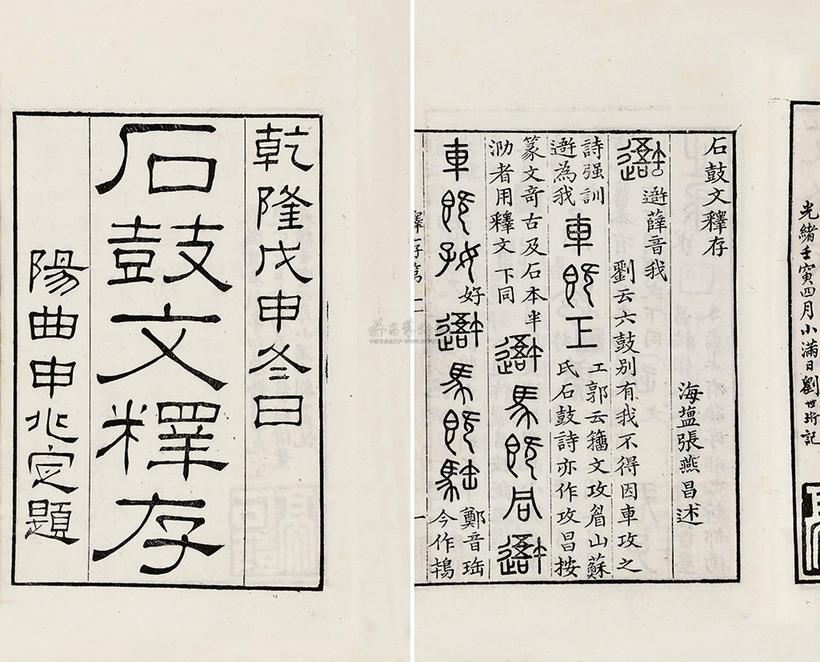 乾隆戊申冬日
石鼓文釋存
陽曲申兆定題
光緒壬寅四月小滿日劉世珩記
石鼓文釋存
海塩張燕昌述
薛音我
劉云六鼓别有我不得因車攻之
詩强訓為我
車既工
工郭云籀文攻眉山蘇
氏石鼓詩亦作攻昌按
篆文奇古及石本半
泐者用釋文下同
馬既同
車既好
好
馬既
鄭音珤
今作鴇
釋存第一
一